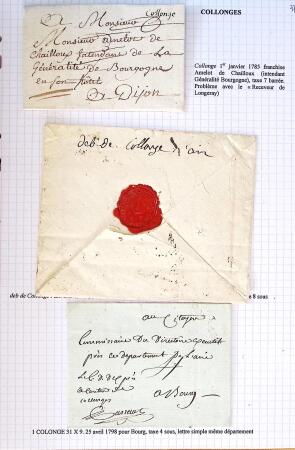 COLLONGES
Collonge
A Monsieur
Monsieur amelot de
Chailloux Intendant de La
Généralité de Bourgogne
en son hotel
A Dijon
Collonge 1er janvier 1783 franchise
Amelot de Chailloux (intendant
Généralité Bourgogne), taxe 7 barrée.
Problème avec le « Receveur de
Longeray)
deb. de Collonge l'ain
deb de Collonge
8 sous
au Citoyen
Commissaire Du Directoire executif
près ce departement De l'ain
de Canton de
collonges
a Bourg
1 COLONGE 31 X 9. 25 avril 1798 pour Bourg, taxe 4 sous, lettre simple même département